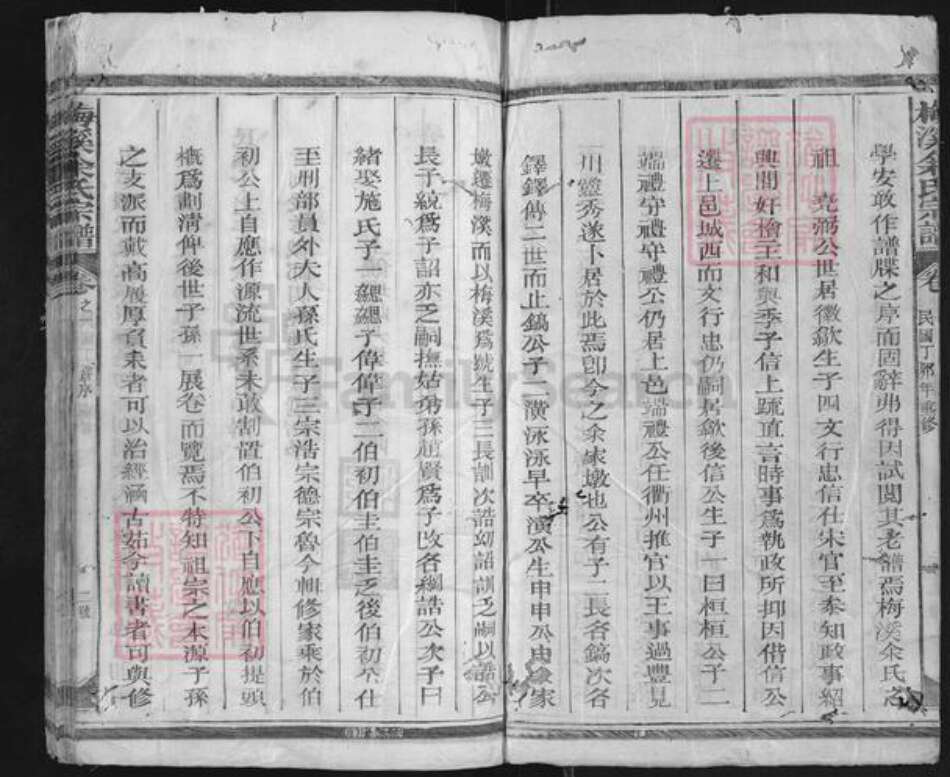 梅溪余氏宗譜
卷
民國丁卯年重修
學安敢作譜牒之序而固辭弗得因試閱其老譜焉梅溪余氏之
祖 堯弼公世居徽歙生子四文行忠信仕宋官至參知政事紹
興間奸檜王和與季子信上疏直言時事為執政所抑因偕信公
遷上邑城西而文行忠仍嗣居歙後信公生子一曰桓桓公子二
端禮守禮守禮公仍居上邑端禮公任衢州推官以王事過豐見
川靈秀遂卜居於此焉卽今之余家墩也公有子二長名鎬次名
鐸鐸傳二世而止鎬公子二潢泳泳早卒潢公生申申公由余家
墩遷梅溪而以梅溪為號生子三長訓次誥幼詔訓乏嗣以誥公
長子統為子詔亦乏嗣撫姑弟孫趙賢為子改名綱誥公次子曰
緒娶施氏子一勰勰子偉偉子二伯初伯圭伯圭乏後伯初公仕
至刑部員外大人孫氏生子三宗浩宗德宗魯今輯修家乘於伯
初公上自應作源流世系未敢割置伯初公下自應以伯初提頭
概為劃清俾後世子孫一展卷而覽焉不特知 祖宗之本源子孫
之支派而戴高履厚負耒者可以治經涵古茹今讀書者可與修
梅溪余氏宗譜
卷之一
序
二
FamilySearch